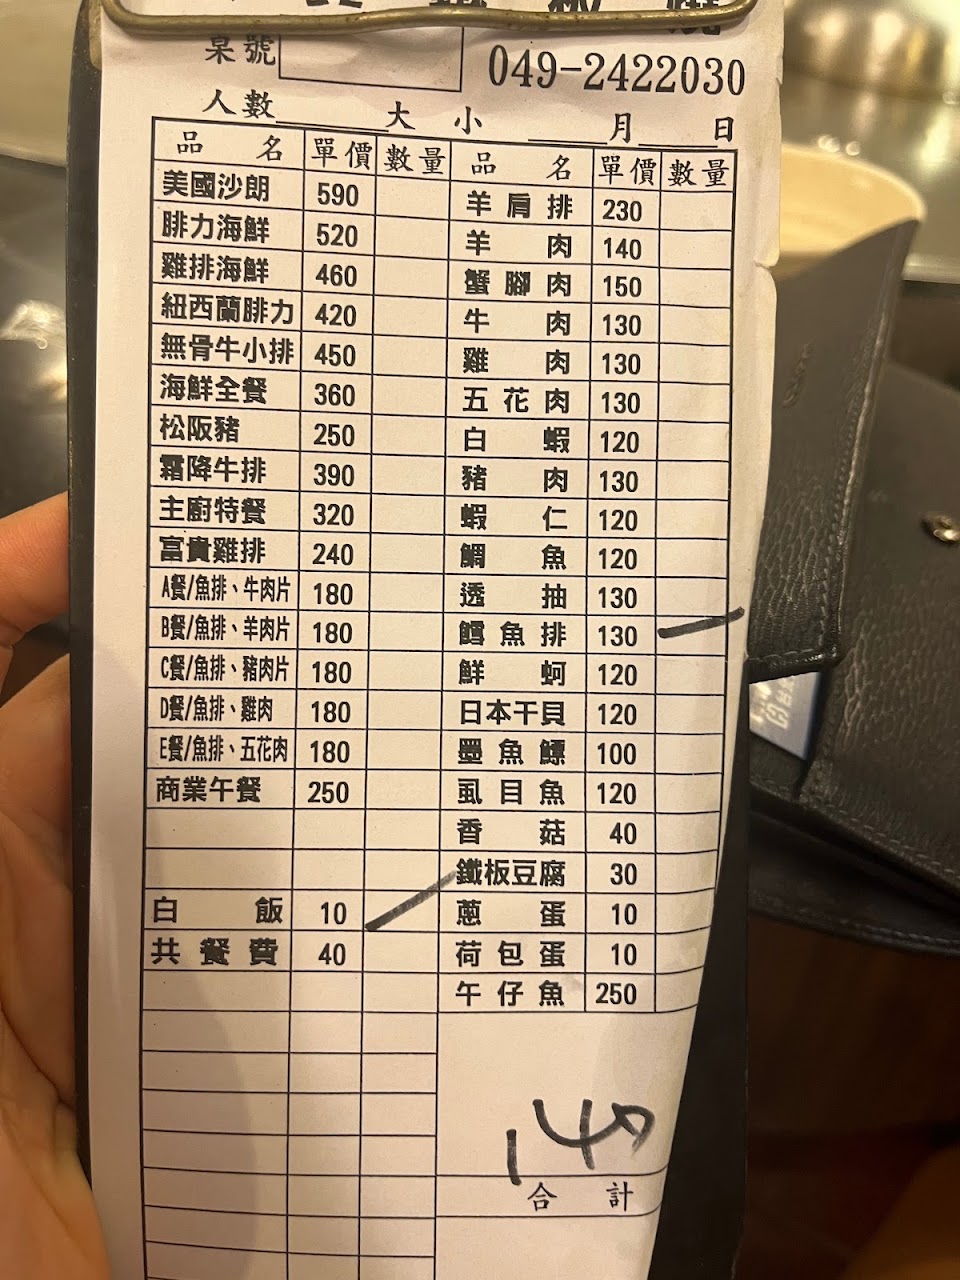 桌號
049-2422030
人數 大 小 月 日
品名 單價 數量 品名 單價 數量
美國沙朗 590 羊肩排 230
腓力海鮮 520 羊肉 140
雞排海鮮 460 蟹腳肉 150
紐西蘭腓力 420 牛肉 130
無骨牛小排 450 雞肉 130
海鮮全餐 360 五花肉 130
松阪豬 250 白蝦 120
霜降牛排 390 豬肉 130
主廚特餐 320 蝦仁 120
富貴雞排 240 鯛魚 120
A餐/魚排、牛肉片 180 透抽 130
B餐/魚排、羊肉片 180 鱈魚排 130
C餐/魚排、豬肉片 180 鮮蚵 120
D餐/魚排、雞肉 180 日本干貝 120
E餐/魚排、五花肉 180 墨魚鰾 100
商業午餐 250 虱目魚 120
香菇 40
鐵板豆腐 30
白飯 10 蔥蛋 10
共餐費 40 荷包蛋 10
午仔魚 250
合計